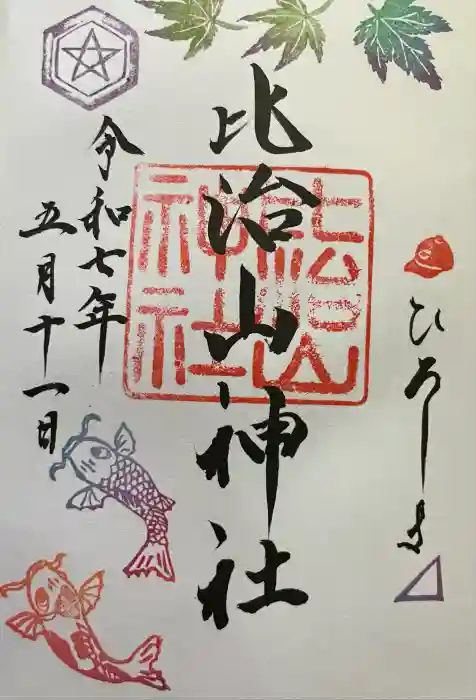 ひろしま
比治山神社
比治山
神社
令和七年
五月十一日